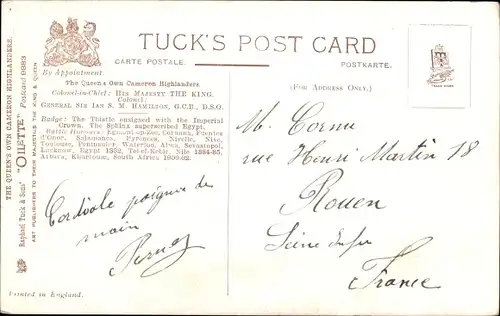 TUCK'S POST CARD
CARTE POSTALE. POSTKARTE.
By Appointment
(FOR ADDRESS ONLY.)
The Queen's Own Cameron Highlanders.
Colonel-in-Chief: HIS MAJESTY THE KING.
Colonel:
GENERAL SIR IAN S. M. HAMILTON, G.C.B., D.S.O.
Badge: The Thistle ensigned with the Imperial
Crown. The Sphinx superscribed Egypt.
Battle Honours: Egmont-op-Zee, Corunna, Fuentes
d'Onor, Salamanca, Pyrenees, Nivelle, Nive,
Toulouse, Peninsular, Waterloo, Alma, Sevastopol,
Lucknow, Egypt 1882, Tel-el-Kebir, Nile 1884-85,
Atbara, Khartoum, South Africa 1900-02.
THE QUEEN'S OWN CAMERON HIGHLANDERS.
Raphael Tuck & Sons' "OILETTE" Postcard 9883
ART PUBLISHERS TO THEIR MAJESTIES THE KING & QUEEN
Cordiale poignée de
main
M. Cornu
rue Henri Martin 18
Rouen
Seine Infre
France
Printed in England.
TRADE MARK